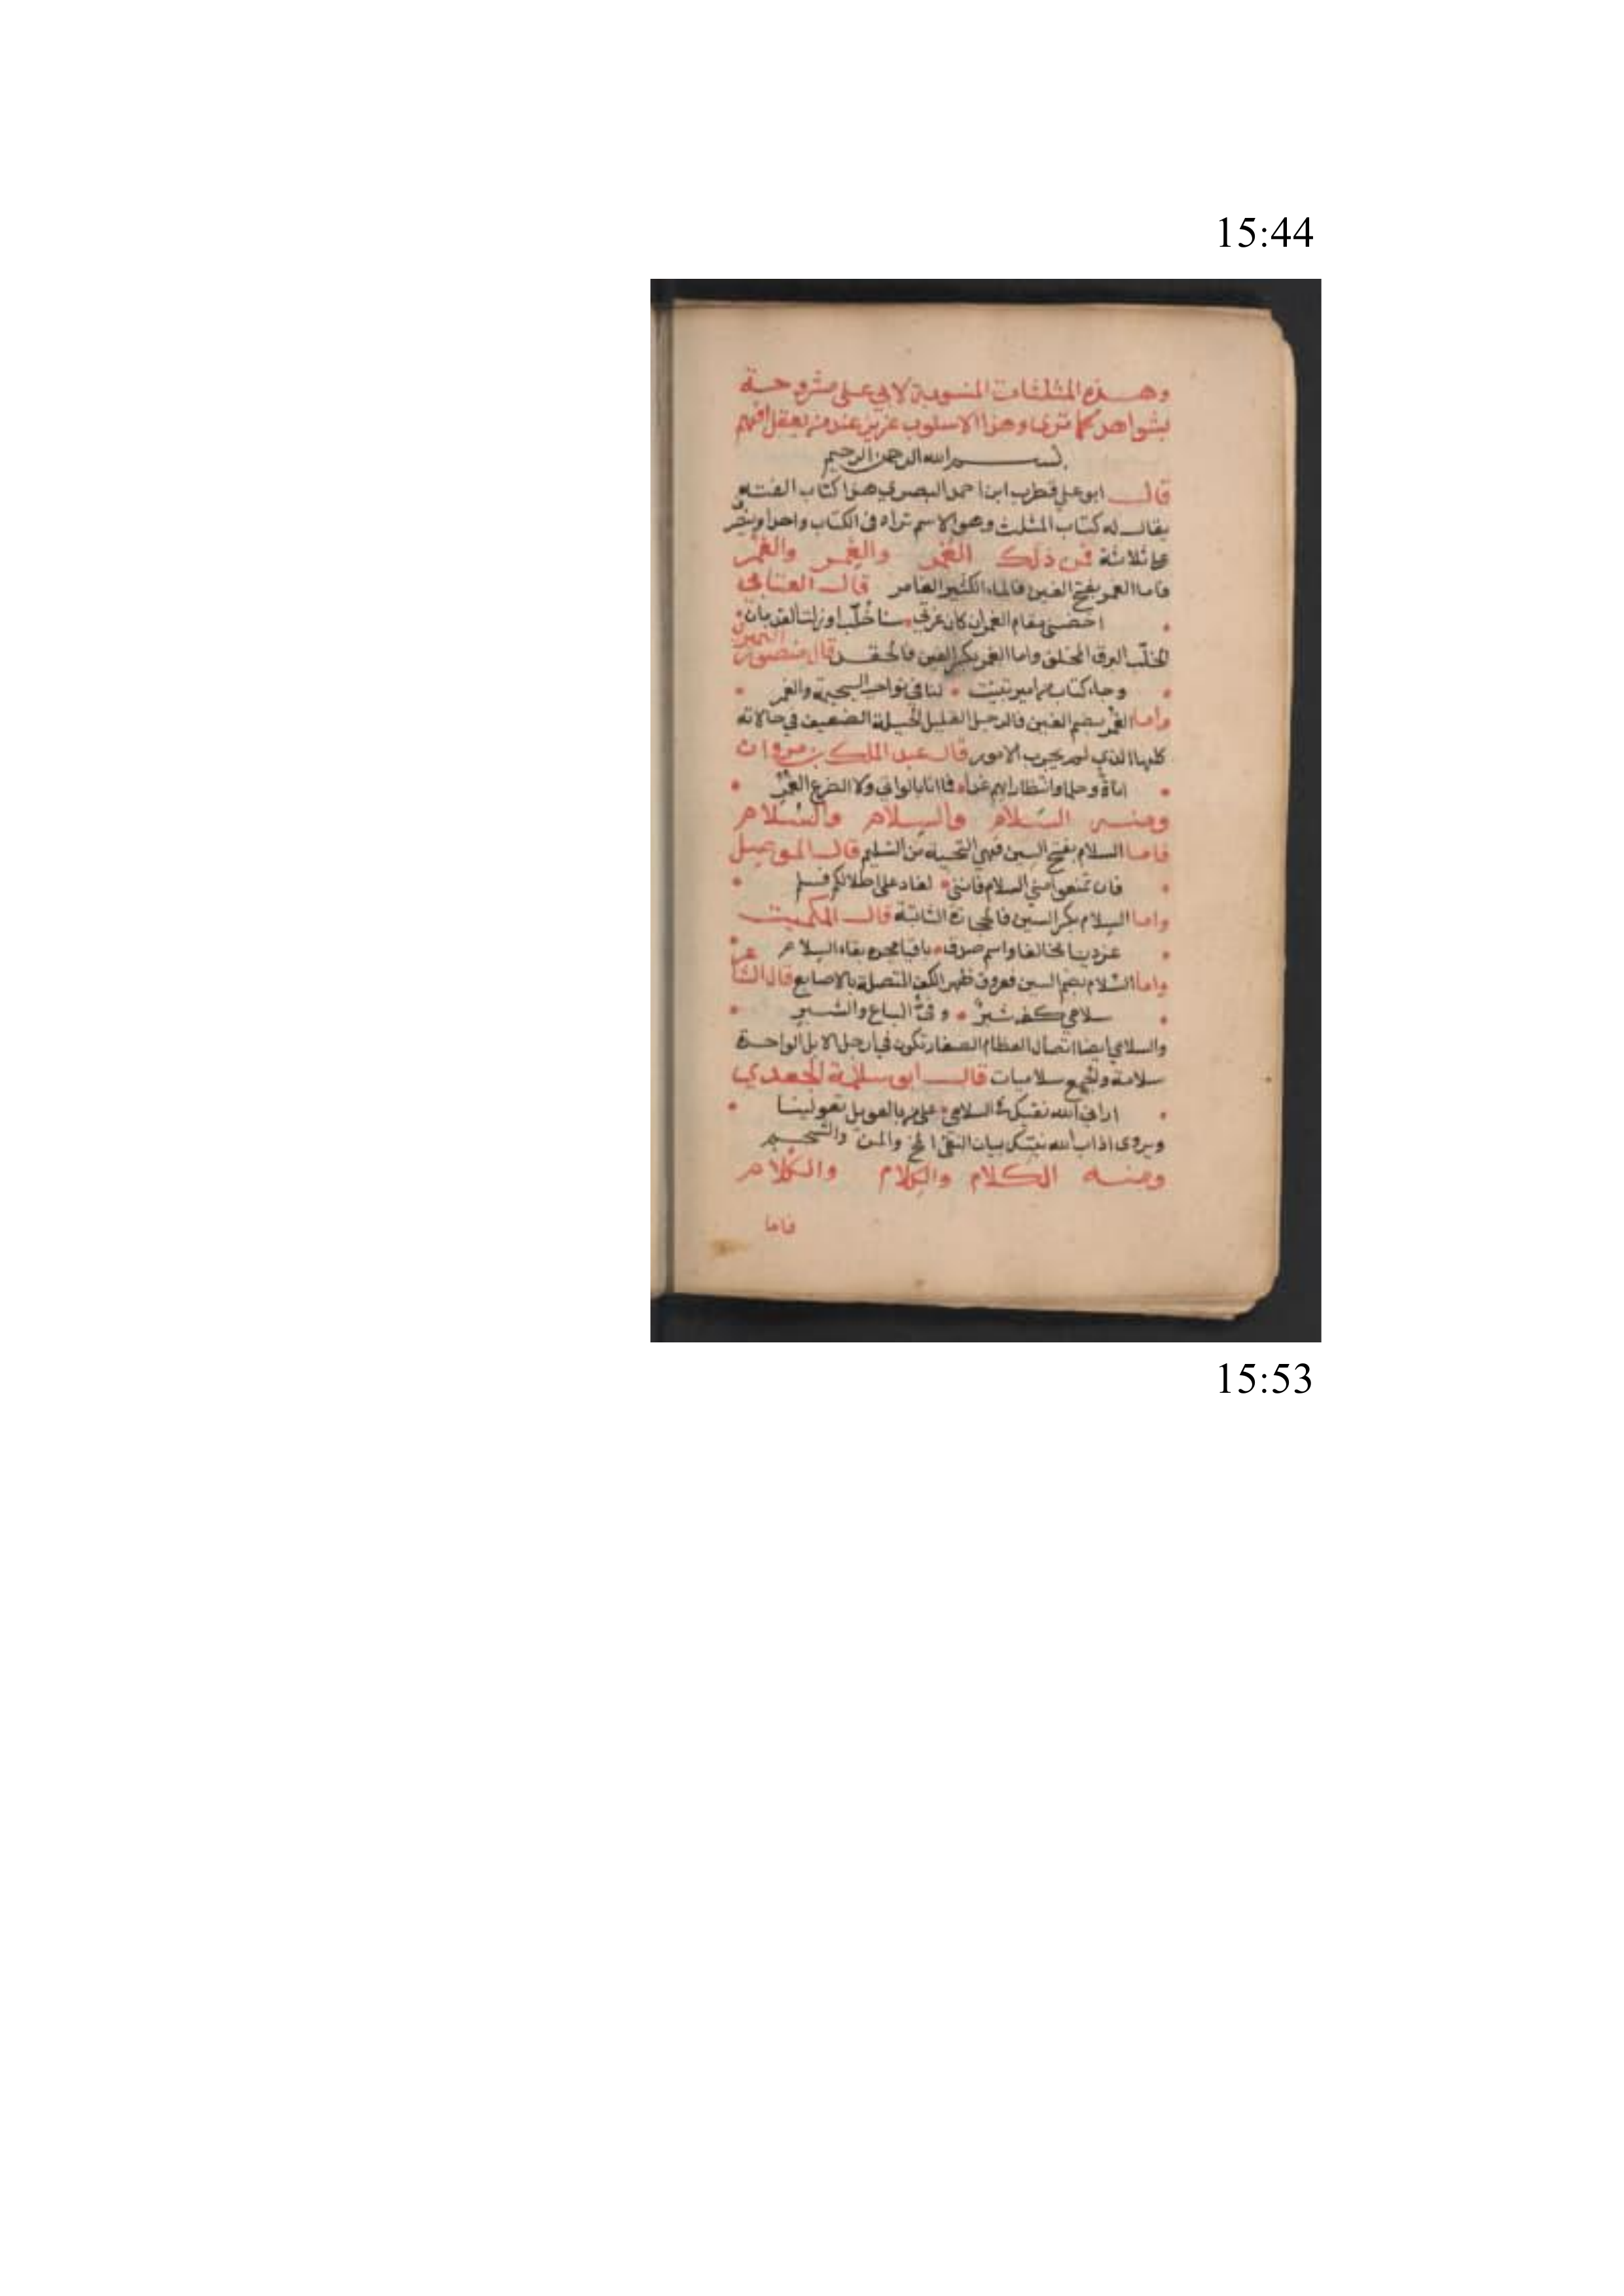 15:44
وهذه المثلثات المنسوبة لابي على مشروحة
بشواهد كما ترى وهذا الاسلوب عزيز عند من يعقل افهم
بسم الله الرحمن الرحيم
قال ابو علي قطرب ابن احمد البصري هذا كتاب الفته
يقال له كتاب المثلث وهو الاسم تراه في الكتاب واحدا ويتصرف
على ثلاثة فمن ذلك الغَمر والغِمر والغُمر
فاما الغمر بفتح الغين فالماء الكثير الغامر قال العتابى
مقام الغمر ان كان غرني سنا خُلّب او زلت القدمان
الخلّب البرق المخلق واما الغمر بكسر الغين فالحقد قال منصور النميري
وجاء كتاب من امير تبينت لنا في نواحيه السجية والغمر
واما الغُمر بضم الغين فالرجل القليل الحيلة الضعيف في حالاته
كلها الذي لم يجرب الامور قال عبد الملك بن مروان
اناةً وحلما وانتظارا بهم غدا فما انا بالواني ولا الضرع الغُمْرُ
ومنه السَلام والسِلام والسُلام
فاما السلام بفتح السين فهي التحية من التسليم قال
فان تمنعوا مني السلام فانني لغاد على اطلالكم فمسلم
واما السِلام بكسر السين فالحجارة الثابتة قال الكميت
باقيا مجده بقاء السلام
واما السُلام بضم السين فعروق ظهر الكف المتصلة بالاصابع قال الشاعر
سلامي كفه شبرٌ الباع والشبر
والسلامي ايضا اتصال العظام الصغار تكون في ارجل الابل الواحدة
سلامة والجمع سلاميات قال ابو سلامة الجعدي
السلامي على من بالعويل تعولينا
ويروى اذاب الله النقى المخ والشحم
ومنه الكَلام والكِلام والكُلام
فاما
15:53